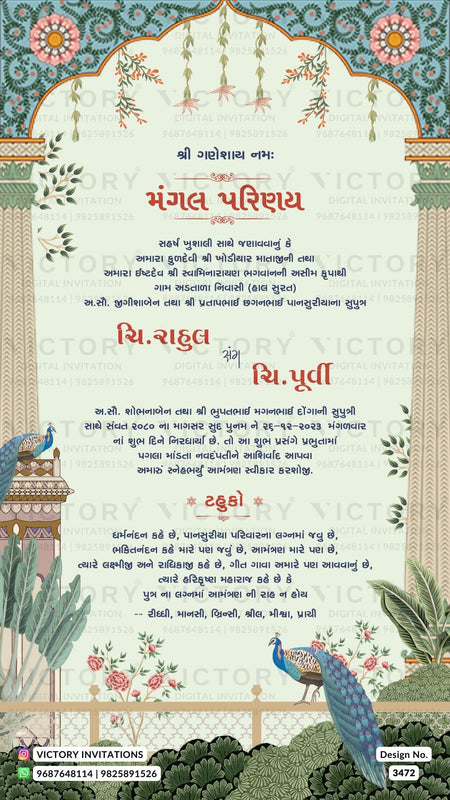 શ્રી ગણેશાય નમઃ
મંગલ પરિણય
સહર્ષ ખુશાલી સાથે જણાવવાનું કે
અમારા કુળદેવી શ્રી ખોડીયાર માતાજીની તથા
અમારા ઈષ્ટદેવ શ્રી સ્વામિનારાયણ ભગવાનની અસીમ કૃપાથી
ગામ અડતાળા નિવાસી (હાલ સુરત)
અ.સૌ. જીગીશાબેન તથા શ્રી પ્રતાપભાઈ છગનભાઈ પાનસુરીયાના સુપુત્ર
ચિ.રાહુલ
સંગ
ચિ.પૂર્વી
અ.સૌ. શોભનાબેન તથા શ્રી ભુપતભાઈ મગનભાઈ દોંગાની સુપુત્રી
સાથે સંવત ૨૦૮૦ ના માગસર સુદ પુનમ ને ૨૬-૧૨-૨૦૨૩ મંગળવાર
નાં શુભ દિને નિરધાર્યા છે. તો આ શુભ પ્રસંગે પ્રભુતામાં
પગલા માંડતા નવદંપતીને આશિર્વાદ આપવા
અમારું સ્નેહભર્યું આમંત્રણ સ્વીકાર કરશોજી.
ટહુકો
ધર્મનંદન કહે છે, પાનસુરીયા પરિવારના લગ્નમાં જવુ છે,
ભક્તિનંદન કહે મારે પણ જવું છે, આમંત્રણ મારે પણ છે,
ત્યારે લક્ષ્મીજી અને રાધિકાજી કહે છે, ગીત ગાવા અમારે પણ આવવાનું છે,
ત્યારે હરિકૃષ્ણ મહારાજ કહે છે કે
પુત્ર ના લગ્નમાં આમંત્રણ ની રાહ ન હોય
-- રીધ્ધી, માનસી, બ્રિન્સી, શ્રીલ, મીશ્વા, પ્રાચી
VICTORY INVITATIONS
9687648114 | 9825891526
Design No.
3472
VICTORY
DIGITAL INVITATION
9687648114 | 9825891526